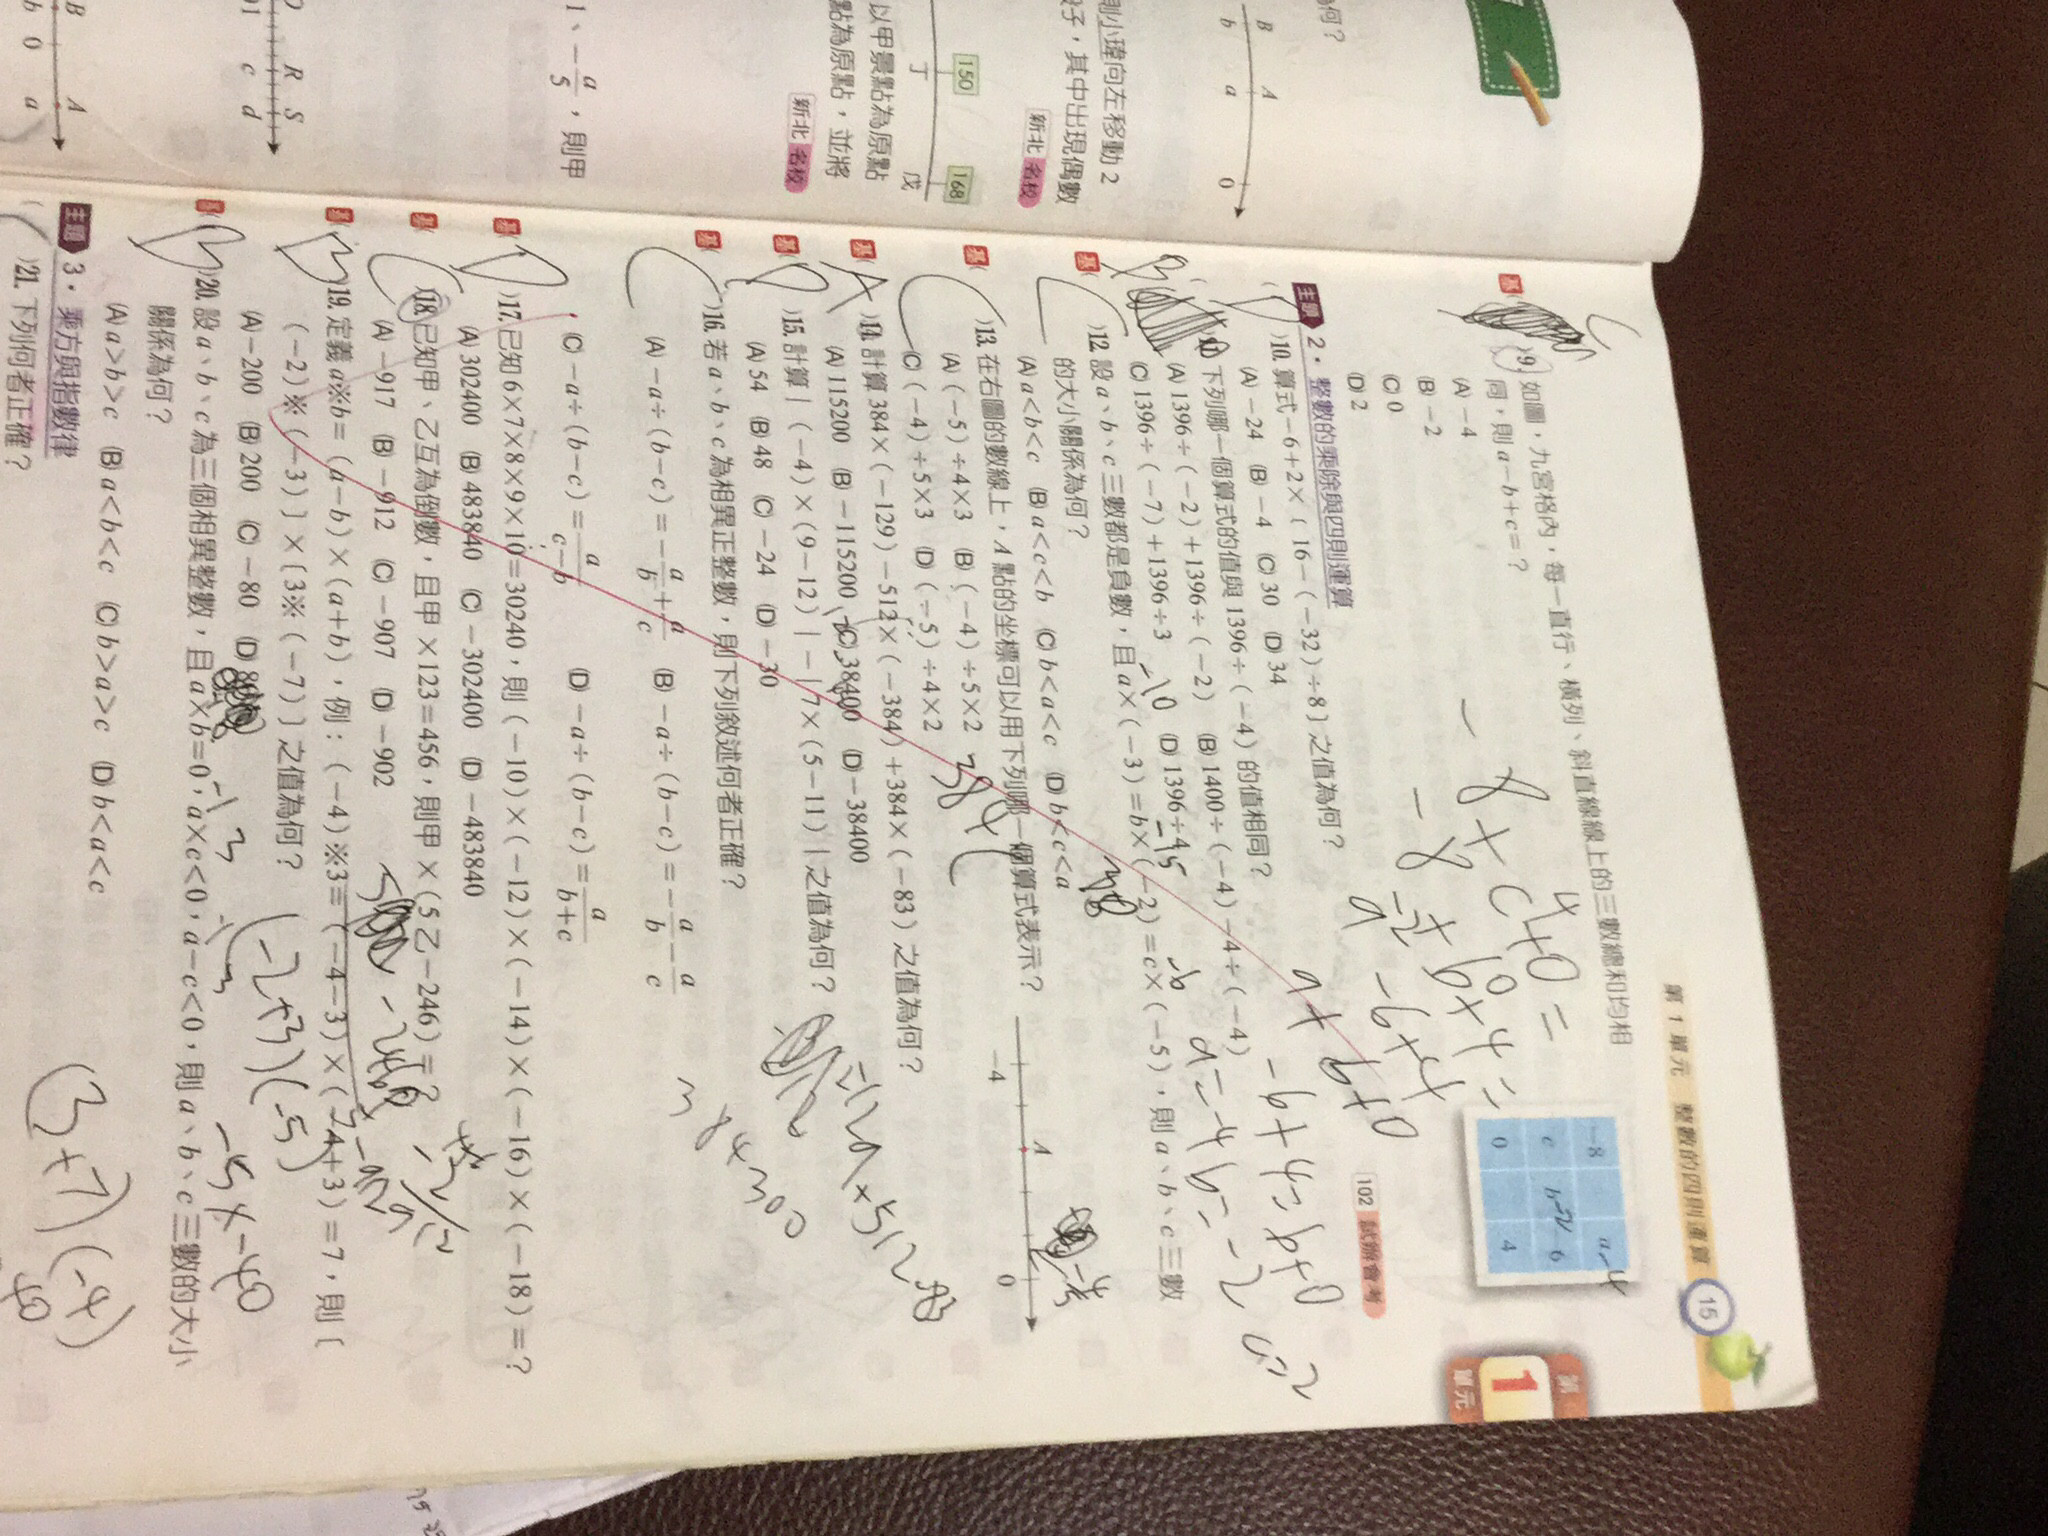 第1單元 整數的四則運算 15
第1單元
9. 如圖,九宮格內,每一直行、橫列、斜直線線上的三數總和均相
同,則 a-b+c=?
(A) -4
(B) -2
(C) 0
(D) 2
-8 a -4
c b -2 6
0 4
主題 2・整數的乘除與四則運算
10. 算式 -6+2×〔16-(-32)÷8〕之值為何? 102 試辦會考
(A) -24 (B) -4 (C) 30 (D) 34
下列哪一個算式的值與 1396÷(-4) 的值相同?
(A) 1396÷(-2)+1396÷(-2) (B) 1400÷(-4)-4÷(-4)
(C) 1396÷(-7)+1396÷3 (D) 1396÷4
基( )12. 設 a、b、c 三數都是負數,且 a×(-3)=b×(-2)=c×(-5),則 a、b、c 三數
的大小關係為何?
(A) a<b<c (B) a<c<b (C) b<a<c (D) b<c<a
基( )13. 在右圖的數線上,A 點的坐標可以用下列哪一個算式表示?
-4 A 0
(A) (-5)÷4×3 (B) (-4)÷5×2
(C) (-4)÷5×3 (D) (-5)÷4×2
基(A)14. 計算 384×(-129)-512×(-384)+384×(-83) 之值為何?
(A) 115200 (B) -115200 (C) 38400 (D) -38400
基(D)15. 計算|(-4)×(9-12)|-|7×(5-11)|之值為何?
(A) 54 (B) 48 (C) -24 (D) -30
基( )16. 若 a、b、c 為相異正整數,則下列敘述何者正確?
(A) -a÷(b-c)=-a/b+a/c (B) -a÷(b-c)=-a/b-a/c
(C) -a÷(b-c)=a/c-b (D) -a÷(b-c)=a/b+c
基(D)17. 已知 6×7×8×9×10=30240,則(-10)×(-12)×(-14)×(-16)×(-18)=?
(A) 302400 (B) 483840 (C) -302400 (D) -483840
基( )18. 已知甲、乙互為倒數,且甲×123=456,則甲×(5乙-246)=?
(A) -917 (B) -912 (C) -907 (D) -902
基(B)19. 定義 a※b=(a-b)×(a+b),例:(-4)※3=(-4-3)×(-4+3)=7,則〔
(-2)※(-3)〕×〔3※(-7)〕之值為何?
(A) -200 (B) 200 (C) -80 (D) 80
20. 設 a、b、c 為三個相異整數,且 a×b=0,a×c<0,a-c<0,則 a、b、c 三數的大小
關係為何?
(A) a>b>c (B) a<b<c (C) b>a>c (D) b<a<c
主題 3・乘方與指數律
( )21. 下列何者正確?
-8+c+0=
a+b+0
a=-4 b=-2
384(
-10
-15
-6
(-2+3)(-5)
-5×-40
(3+7)(-4)
40
何?
B A
b a 0
則小瑋向左移動 2
子,其中出現偶數
新北 名校
150 168
丁 戊
以甲景點為原點
點為原點,並將
新北 名校
1、-a/5,則甲
R S
c d
B A
b 0 a